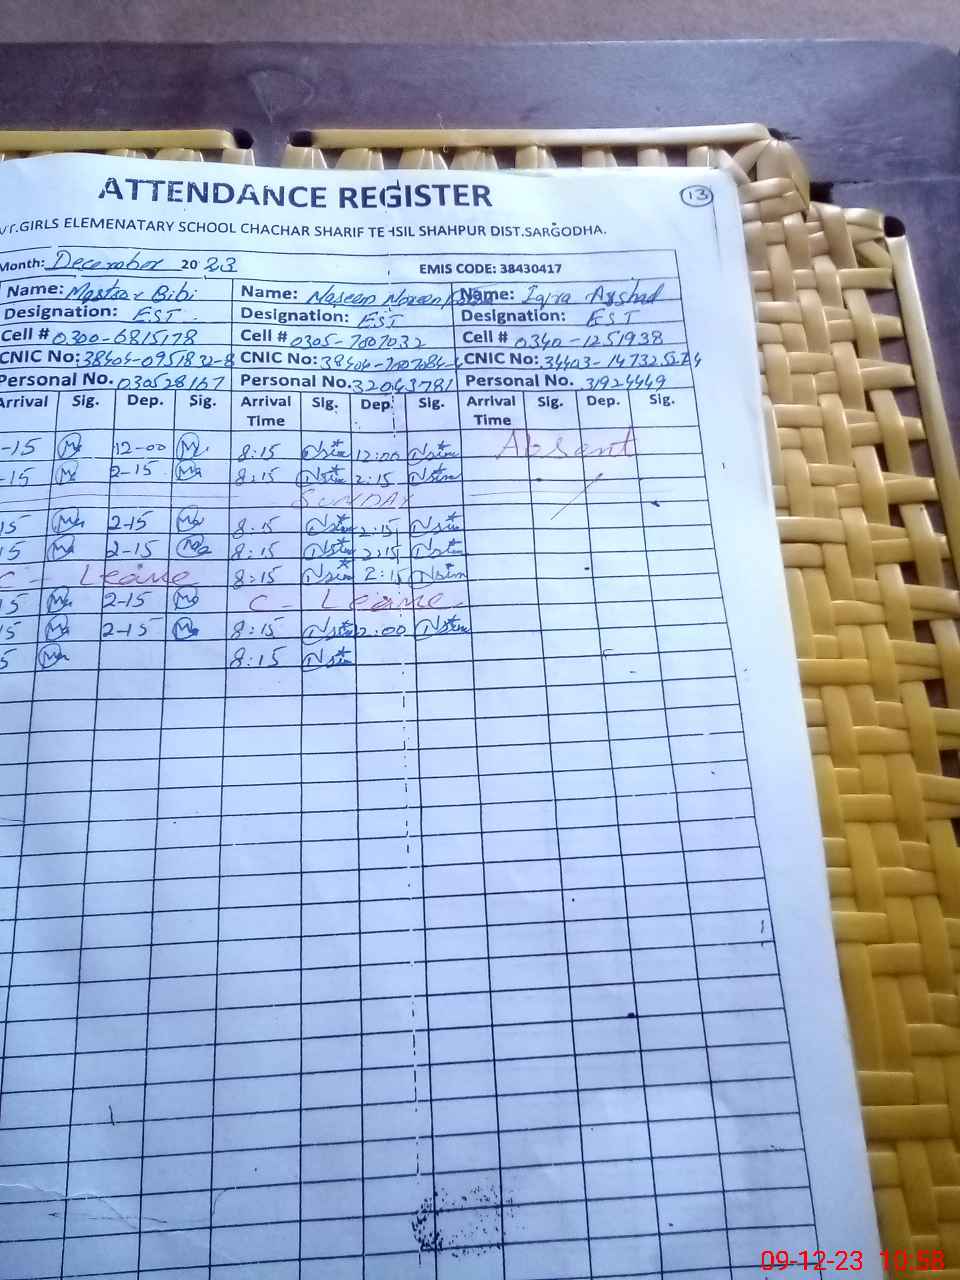 ATTENDANCE REGISTER
13
GIRLS ELEMENATARY SCHOOL CHACHAR SHARIF TEHSIL SHAHPUR DIST.SARGODHA.
Month: December 2023 EMIS CODE: 38430417
Name: Bibi Name: Naseem Name: Iqra Arshad
Designation: EST Designation: EST Designation: EST
Cell # 0300-6815178 Cell # 0305-7007032 Cell # 0340-1251938
CNIC No: 38404-0951832-8 CNIC No: CNIC No:
Personal No. 030528167 Personal No. 32043781 Personal No. 31924449
Arrival Sig. Dep. Sig. Arrival Time Sig. Dep. Sig. Arrival Time Sig. Dep. Sig.
-15 12-00 8:15 12:00 Absent
-15 2-15 8:15 2:15
SUNDAY
15 2-15 8:15 2:15
15 2-15 8:15 2:15
C - Leave 8:15 2:15
15 2-15 C - Leave
15 2-15 8:15 2:00
5 8:15
09-12-23 10:58